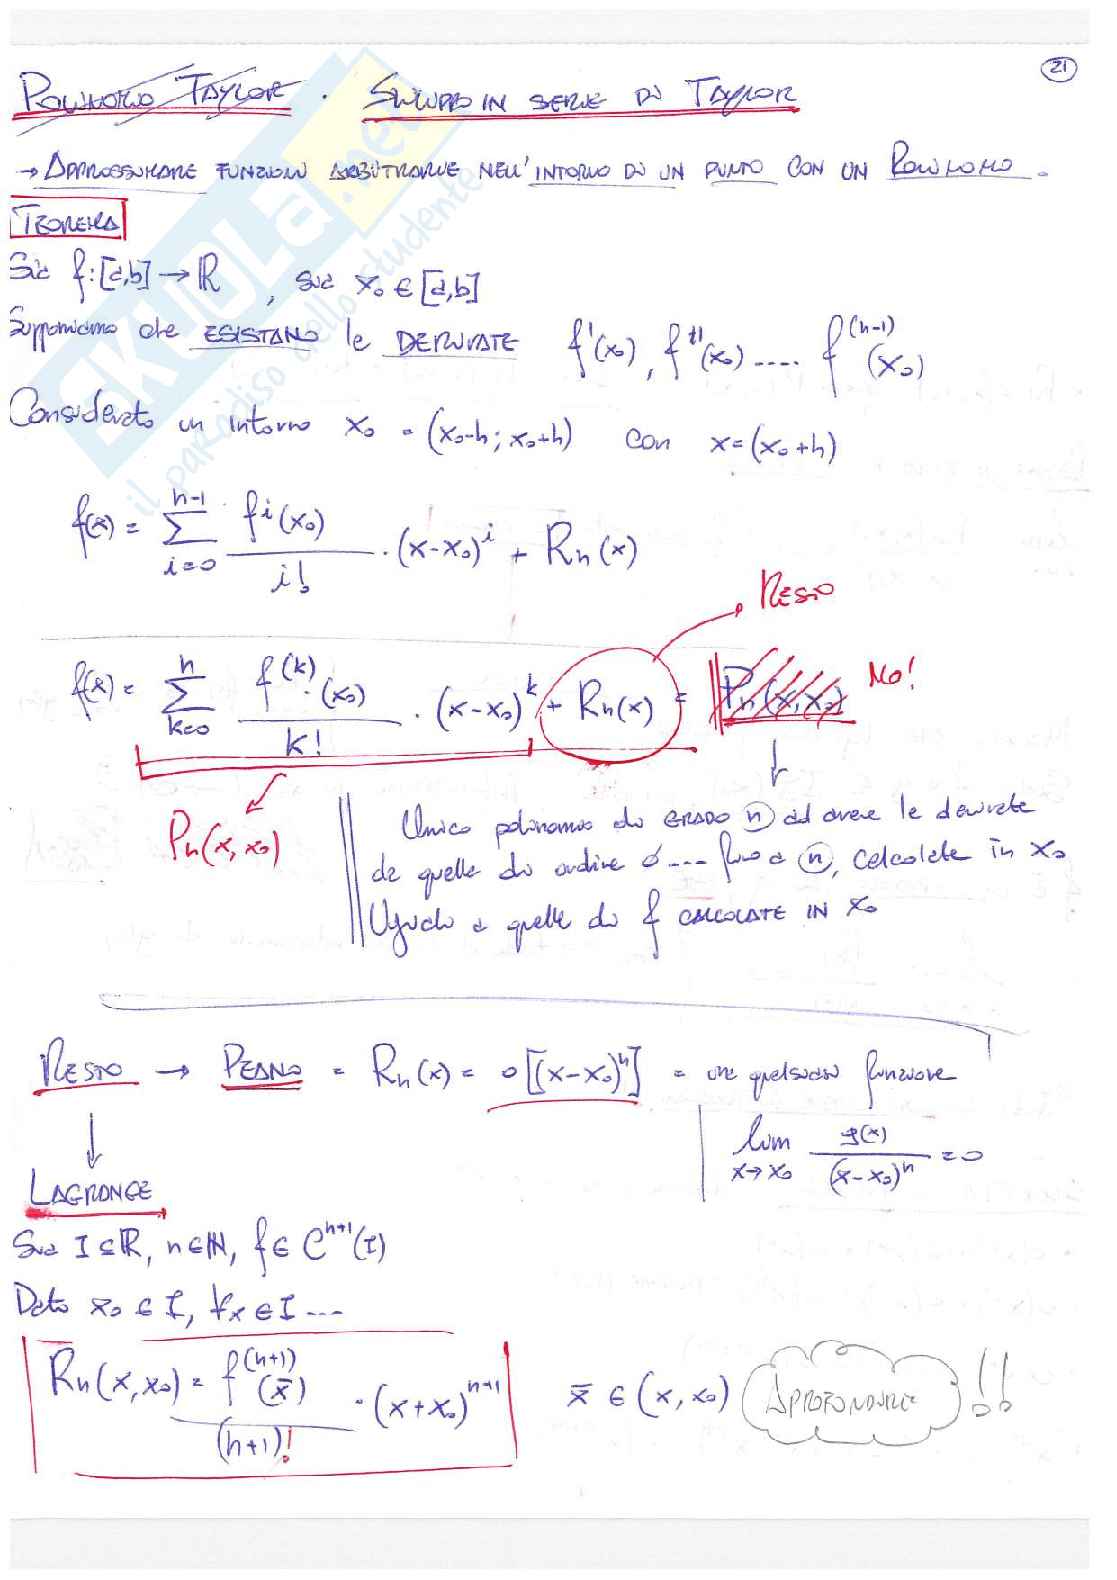 21
Polinomio Taylor . Sviluppo in serie di Taylor
→ Approssimare funzioni arbitrarie nell'intorno di un punto con un Polinomio.
Teorema
Sia f: [a,b] → ℝ , sia x₀ ∈ [a,b]
Supponiamo che ESISTANO le DERIVATE f'(x₀), f''(x₀) .... f^(n-1)(x₀)
Considerato un intorno x₀ = (x₀-h; x₀+h) con x=(x₀+h)
f(x) = ∑_{i=0}^{n-1} f^i(x₀)/i! · (x-x₀)^i + Rn(x)
Resto
f(x) = ∑_{k=0}^{n} f^(k)(x₀)/k! · (x-x₀)^k + Rn(x) = Pn(x,x₀) No!
Pn(x,x₀)
Unico polinomio di GRADO n ad avere le derivate
da quelle di ordine 0 ... fino a n, calcolate in x₀
Uguali a quelle di f CALCOLATE IN x₀
Resto → Peano = Rn(x) = o[(x-x₀)^n] = una qualsiasi funzione
lim_{x→x₀} g(x)/(x-x₀)^n = 0
Lagrange
Sia I ⊆ ℝ, n ∈ ℕ, f ∈ C^{n+1}(I)
Dato x₀ ∈ I, ∀x ∈ I ...
Rn(x,x₀) = f^(n+1)(x̄)/(n+1)! · (x+x₀)^{n+1} x̄ ∈ (x,x₀) Approfondire !!
SKUOLA.net
il paradiso dello studente